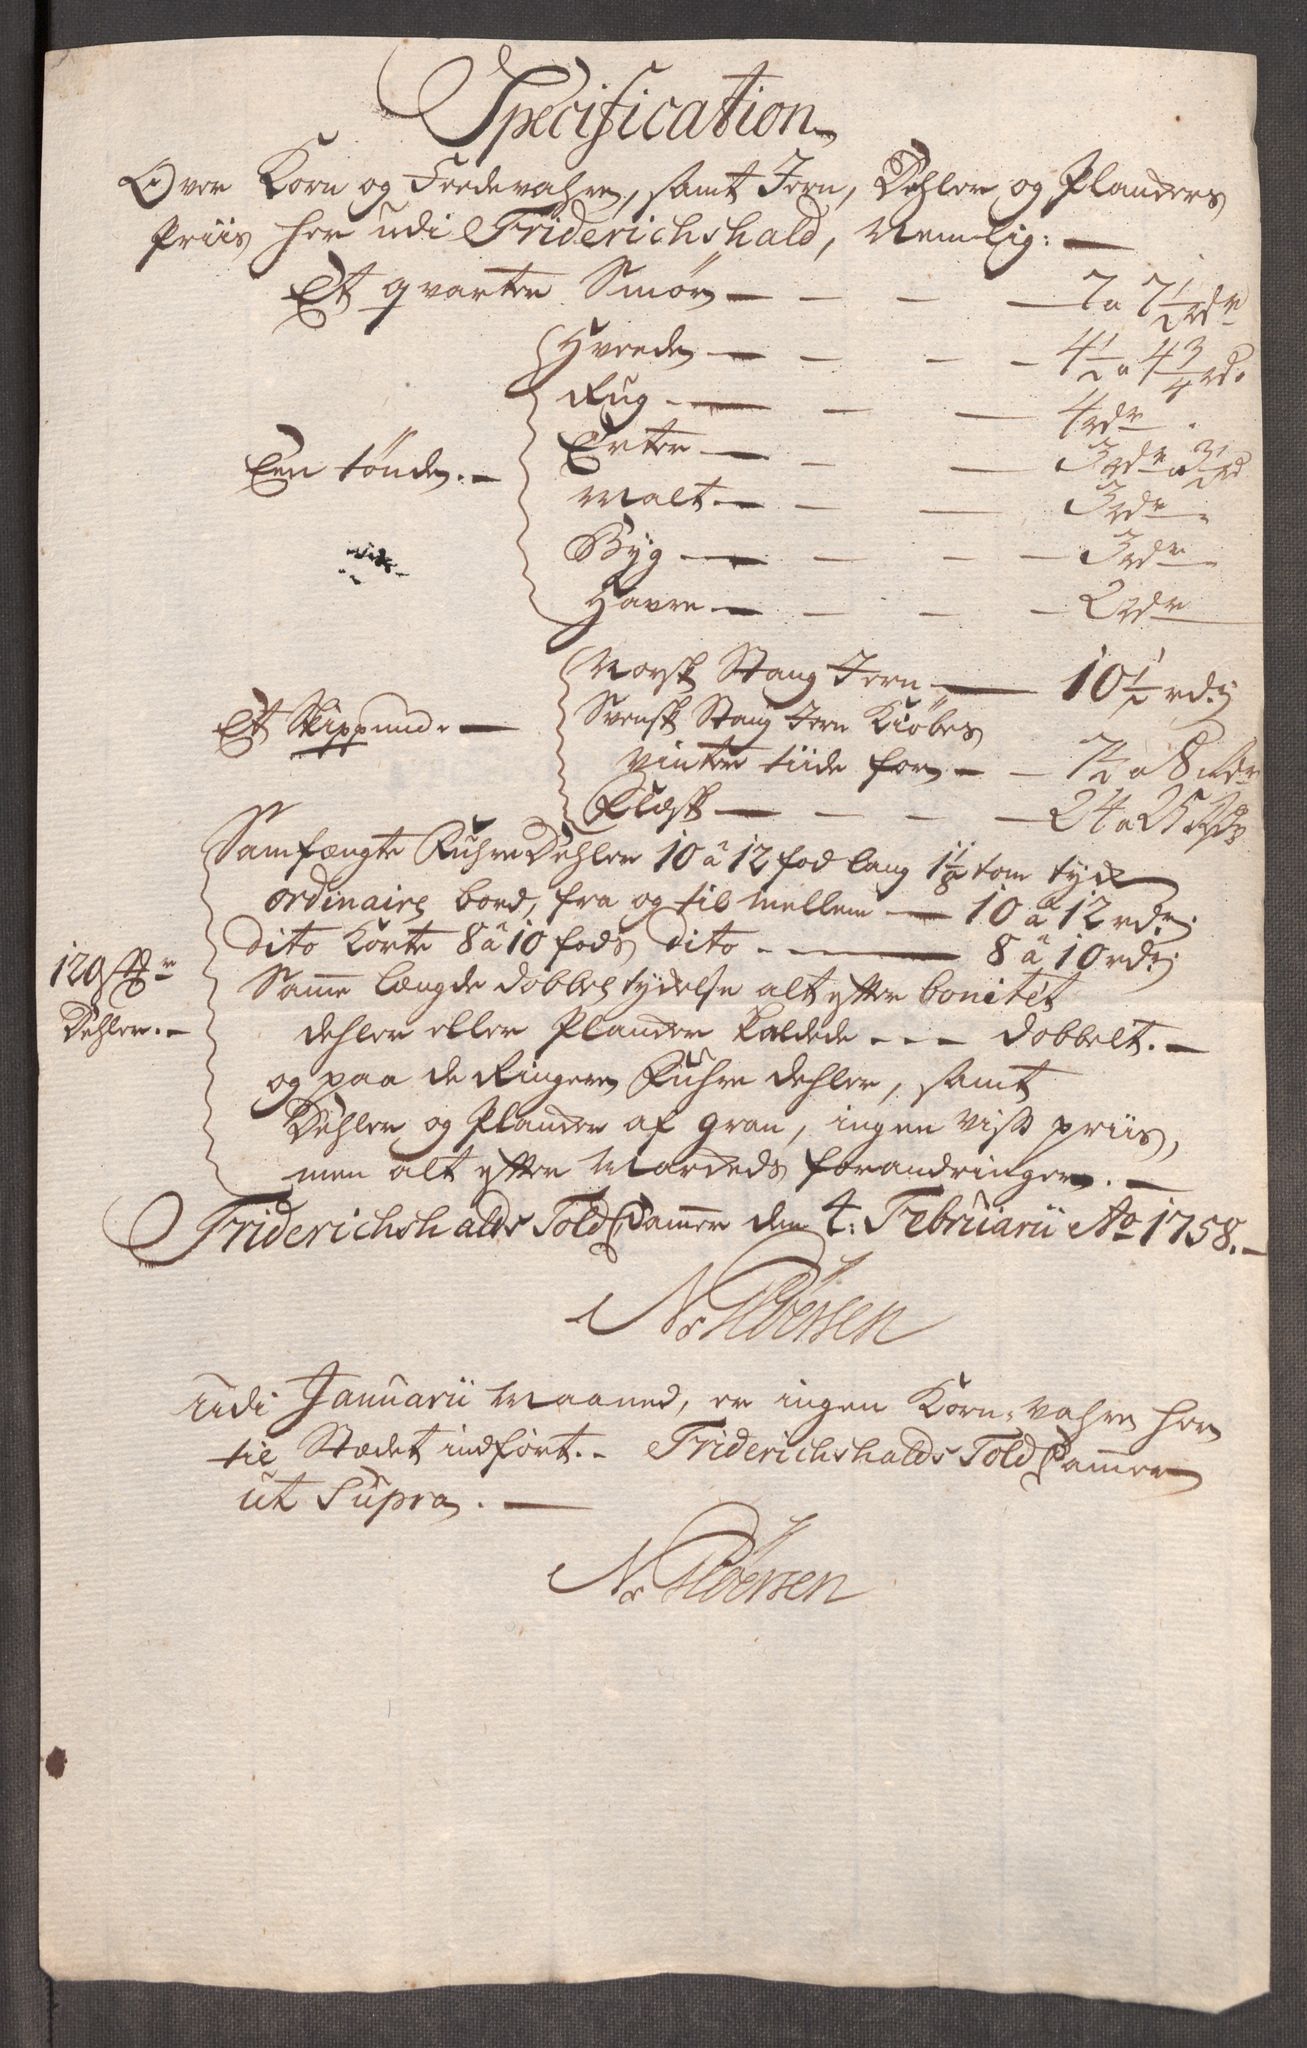 Specification
Over Korn og Feedevahre, samt Jern, Dehler og Planders
Priis her udi Friderichshald, Nemlig: —
Et qvarter Smör — — — — 7 a 7½ rdr
Hveede — — — — 4½ a 4¾ rd.
Rug — — — 4 rdr.
Erter — — — 3 rdr a 3½ rd
Een tönde. — Malt — — — 3 rdr.
Byg — — — — 3 rdr
Havre — — — — 2 rdr
Norsk Stang Jern — 10½ rdr
Et Skippund — Svensk Stang Jern Kiöbes
Vinter tiide for — — 7½ a 8 rdr
Flæsk — — — — 24 a 25 rdr
Samfængte Fuhre Dehler 10 â 12 fod lang 1⅛ tom tyck
ordinaire bord, fra og til mellem — 10 â 12 rdr.
dito Korte 8 â 10 fods dito — 8 â 10 rdr.
120
Dehler. — Samme længde dobbel tydelse alt efter bonitét
dehler eller Plander kaldede - - - dobbelt. —
og paa de Ringere Fuhre dehler, samt
Dehler og Plander af gran, ingen vist priis,
men alt efter Markeds forandringer. —
Friderichshalds Told Cammer den 4: Februarii Ao 1758. —
N. Ibersen
udi Januarii Maaned, er ingen Korn-Vahre her
til Stædet indfört. - Friderichshalds Told Cammer
ut Supra. —
N. Ibersen